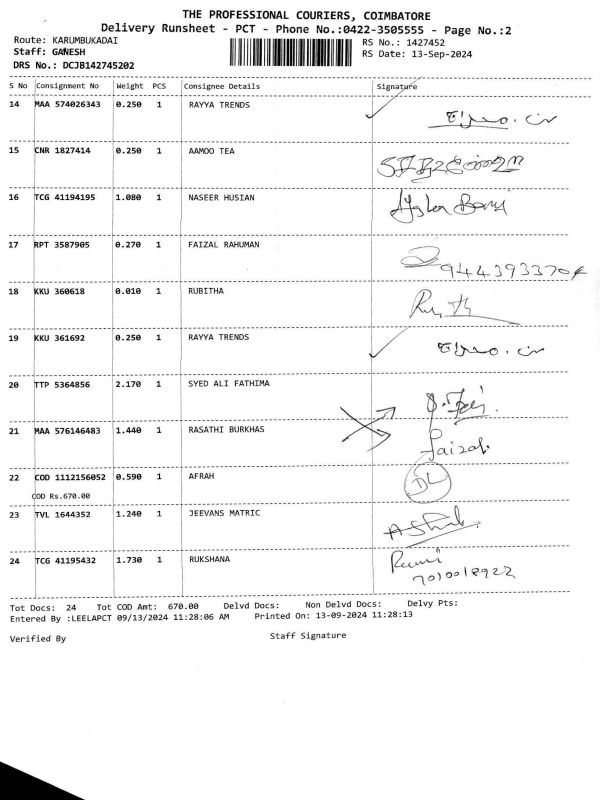 THE PROFESSIONAL COURIERS, COIMBATORE
Delivery Runsheet - PCT - Phone No.:0422-3505555 - Page No.:2
Route: KARUMBUKADAI
RS No.: 1427452
Staff: GANESH
RS Date: 13-Sep-2024
DRS No.: DCJB142745202
S No Consignment No Weight PCS Consignee Details Signature
14 MAA 574026343 0.250 1 RAYYA TRENDS
15 CNR 1827414 0.250 1 AAMOO TEA
16 TCG 41194195 1.080 1 NASEER HUSIAN
17 RPT 3587905 0.270 1 FAIZAL RAHUMAN
9443933704
18 KKU 360618 0.010 1 RUBITHA
19 KKU 361692 0.250 1 RAYYA TRENDS
20 TTP 5364856 2.170 1 SYED ALI FATHIMA
21 MAA 576146483 1.440 1 RASATHI BURKHAS
Faizal
22 COD 1112156052 0.590 1 AFRAH
DL
COD Rs.670.00
23 TVL 1644352 1.240 1 JEEVANS MATRIC
24 TCG 41195432 1.730 1 RUKSHANA
7010018922
Tot Docs: 24 Tot COD Amt: 670.00 Delvd Docs: Non Delvd Docs: Delvy Pts:
Entered By :LEELAPCT 09/13/2024 11:28:06 AM Printed On: 13-09-2024 11:28:13
Verified By Staff Signature